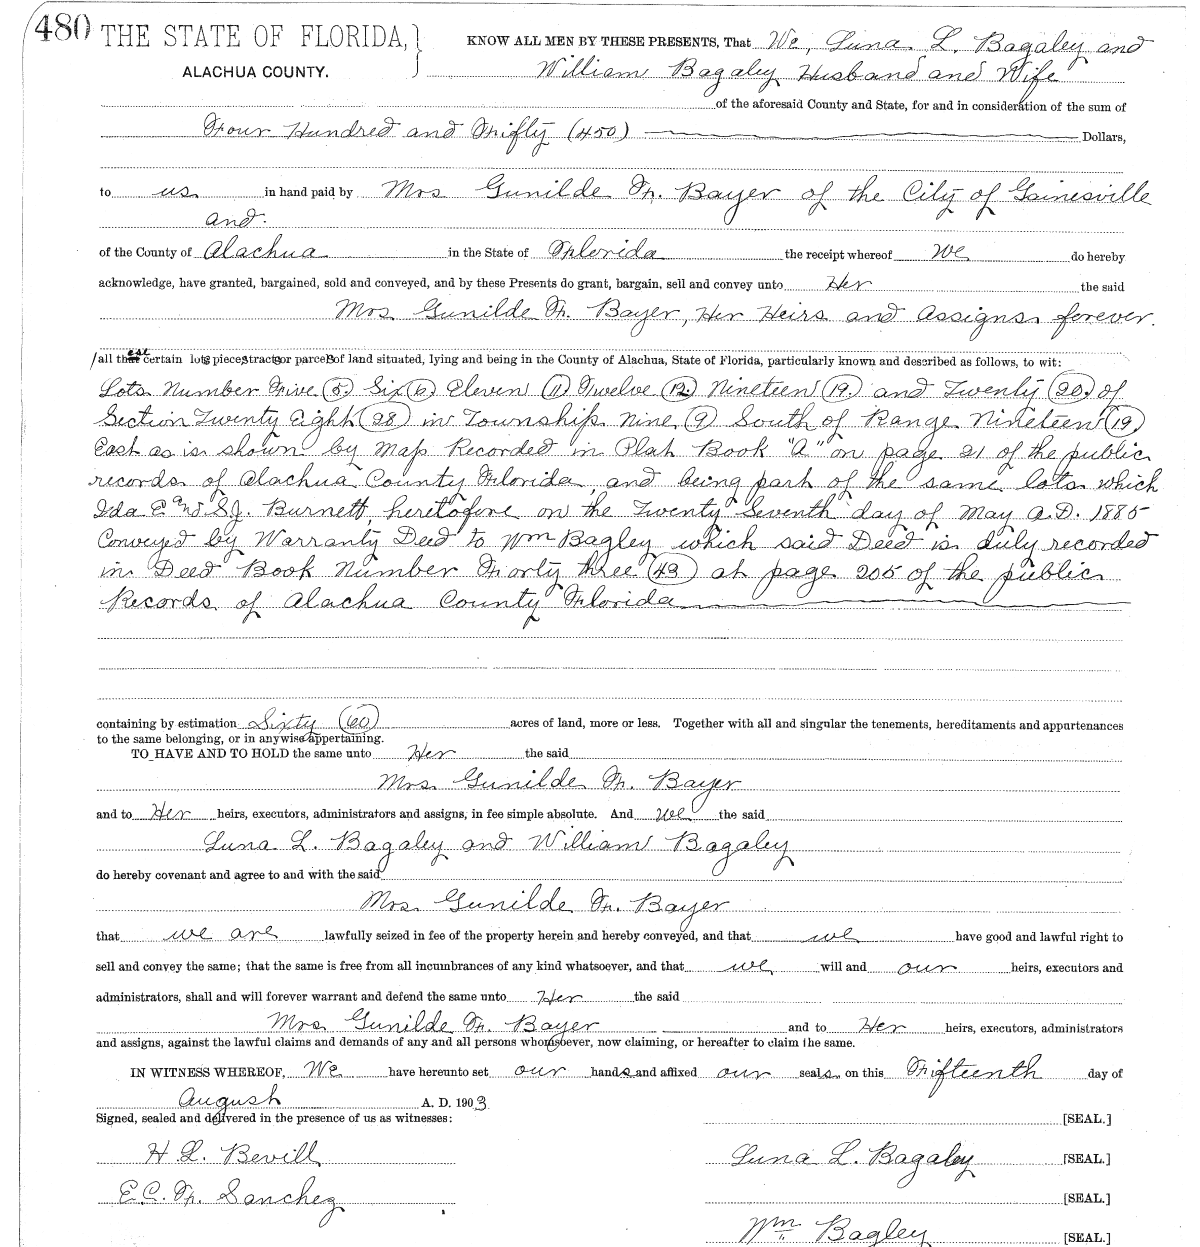 480 THE STATE OF FLORIDA, KNOW ALL MEN BY THESE PRESENTS, That We, Luna L. Bagaley and
ALACHUA COUNTY. William Bagaley Husband and Wife
of the aforesaid County and State, for and in consideration of the sum of
Four Hundred and Fifty (450) Dollars,
to us in hand paid by Mrs Gunilde F. Bayer of the City of Gainesville
and
of the County of Alachua in the State of Florida the receipt whereof We do hereby
acknowledge, have granted, bargained, sold and conveyed, and by these Presents do grant, bargain, sell and convey unto Her the said
Mrs Gunilde F. Bayer, Her Heirs and Assigns forever.
all those certain lots pieces tracts or parcels of land situated, lying and being in the County of Alachua, State of Florida, particularly known and described as follows, to wit:
Lots Number Five (5) Six (6) Eleven (11) Twelve (12) Nineteen (19) and Twenty (20) of
Section Twenty Eight (28) in Township Nine (9) South of Range Nineteen (19)
East as is shown by Map Recorded in Plat Book "A" on page 21 of the public
records of Alachua County Florida, and being part of the same lots which
Ida E and S.J. Burnett, heretofore on the Twenty Seventh day of May A.D. 1885
Conveyed by Warranty Deed to Wm Bagley which said Deed is duly recorded
in Deed Book Number Forty three (43) at page 205 of the public
Records of Alachua County Florida
containing by estimation Sixty (60) acres of land, more or less. Together with all and singular the tenements, hereditaments and appurtenances
to the same belonging, or in anywise appertaining.
TO HAVE AND TO HOLD the same unto Her the said
Mrs Gunilde F. Bayer
and to Her heirs, executors, administrators and assigns, in fee simple absolute. And we the said
Luna L. Bagaley and William Bagaley
do hereby covenant and agree to and with the said
Mrs Gunilde F. Bayer
that we are lawfully seized in fee of the property herein and hereby conveyed, and that we have good and lawful right to
sell and convey the same; that the same is free from all incumbrances of any kind whatsoever, and that we will and our heirs, executors and
administrators, shall and will forever warrant and defend the same unto Her the said
Mrs Gunilde F. Bayer and to Her heirs, executors, administrators
and assigns, against the lawful claims and demands of any and all persons whomsoever, now claiming, or hereafter to claim the same.
IN WITNESS WHEREOF, We have hereunto set our hands and affixed our seals on this Fifteenth day of
August A. D. 1903
Signed, sealed and delivered in the presence of us as witnesses: [SEAL.]
H L. Bevill Luna L. Bagaley [SEAL.]
E.C. F. Sanchez [SEAL.]
Wm Bagley [SEAL.]